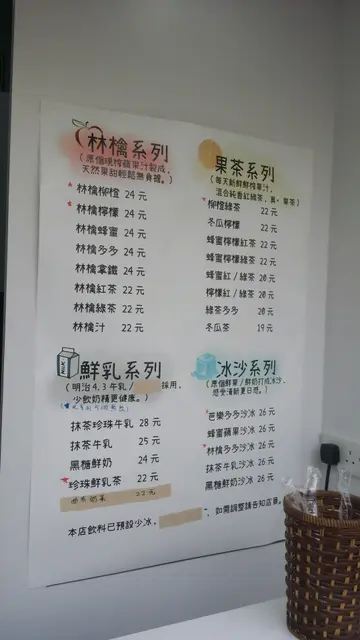 林檎系列
(原個現榨蘋果汁製成，
天然果甜輕鬆無負擔。)
林檎柳橙 24 元
林檎檸檬 24 元
林檎蜂蜜 24 元
林檎多多 24 元
林檎拿鐵 24 元
林檎紅茶 22 元
林檎綠茶 22 元
林檎汁 22 元
果茶系列
(每天新鮮鮮榨果汁，
混合純香紅綠茶，真·果茶)
柳橙綠茶 22 元
冬瓜檸檬 22 元
蜂蜜檸檬紅茶 22 元
蜂蜜檸檬綠茶 22 元
蜂蜜紅/綠茶 20 元
檸檬紅/綠茶 20 元
綠茶多多 20 元
冬瓜茶 19 元
鮮乳系列
(明治4.3牛乳/ 採用，
少飲奶精更健康。)
抹茶珍珠牛乳 28 元
抹茶牛乳 25 元
黑糖鮮奶 24 元
珍珠鮮乳茶 22 元
22 元
冰沙系列
(原個鮮果/鮮奶打成冰沙，
感受清新夏日感。)
芭樂多多沙冰 26 元
蜂蜜蘋果沙冰 26 元
林檎多多沙冰 26 元
抹茶牛乳沙冰 26 元
黑糖鮮奶沙冰 26 元
本店飲料已預設少冰， 如需調整請告知店員。